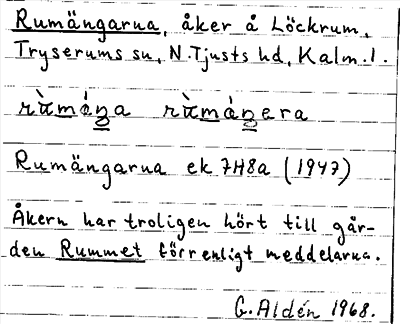 Rumängarna, åker å Löckrum,
Tryserums sn, N. Tjusts hd, Kalm. l.
Rumängarna ek 7H8a (1947)
Åkern har troligen hört till går-
den Rummet förr enligt meddelarna.
G. Aldén 1968.